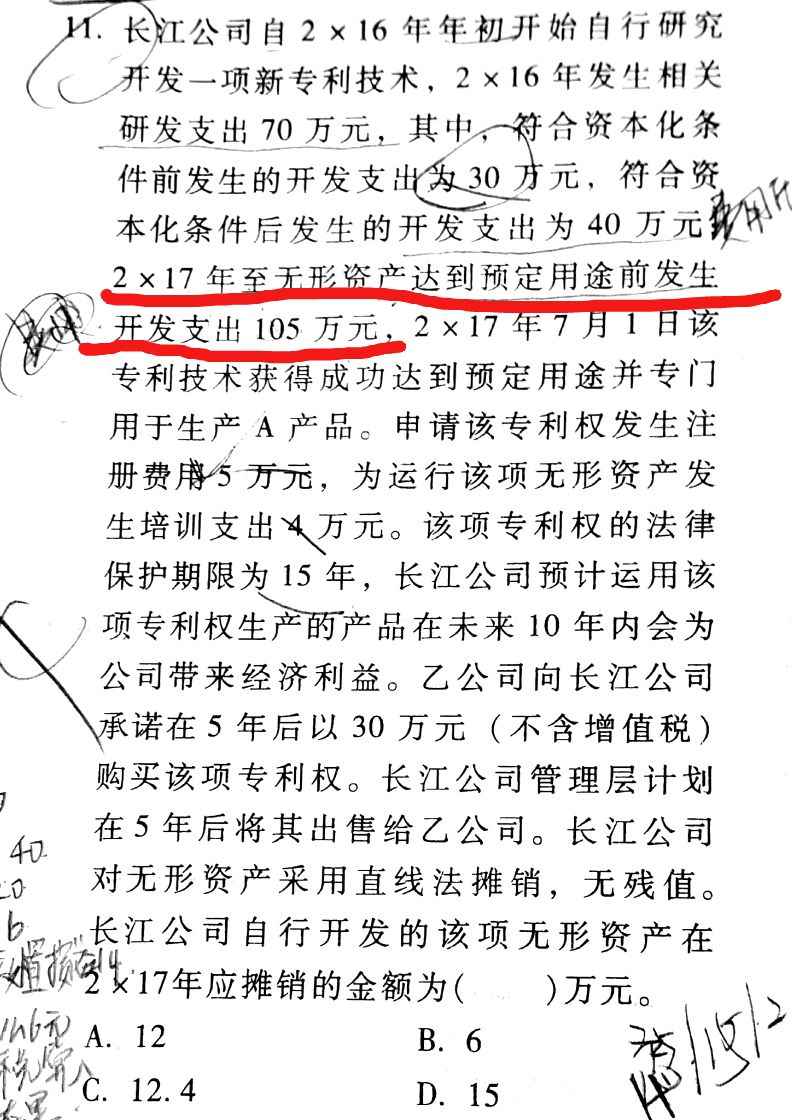 11. 长江公司自 2×16 年年初开始自行研究
开发一项新专利技术，2×16 年发生相关
研发支出 70 万元，其中，符合资本化条
件前发生的开发支出为 30 万元，符合资
本化条件后发生的开发支出为 40 万元
费用化
2×17 年至无形资产达到预定用途前发生
开发支出 105 万元，2×17 年 7 月 1 日该
专利技术获得成功达到预定用途并专门
用于生产 A 产品。申请该专利权发生注
册费用 5 万元，为运行该项无形资产发
生培训支出 4 万元。该项专利权的法律
保护期限为 15 年，长江公司预计运用该
项专利权生产的产品在未来 10 年内会为
公司带来经济利益。乙公司向长江公司
承诺在 5 年后以 30 万元（不含增值税）
购买该项专利权。长江公司管理层计划
在 5 年后将其出售给乙公司。长江公司
40
对无形资产采用直线法摊销，无残值。
长江公司自行开发的该项无形资产在
6
2×17年应摊销的金额为(　　)万元。
A. 12　B. 6
C. 12.4　D. 15